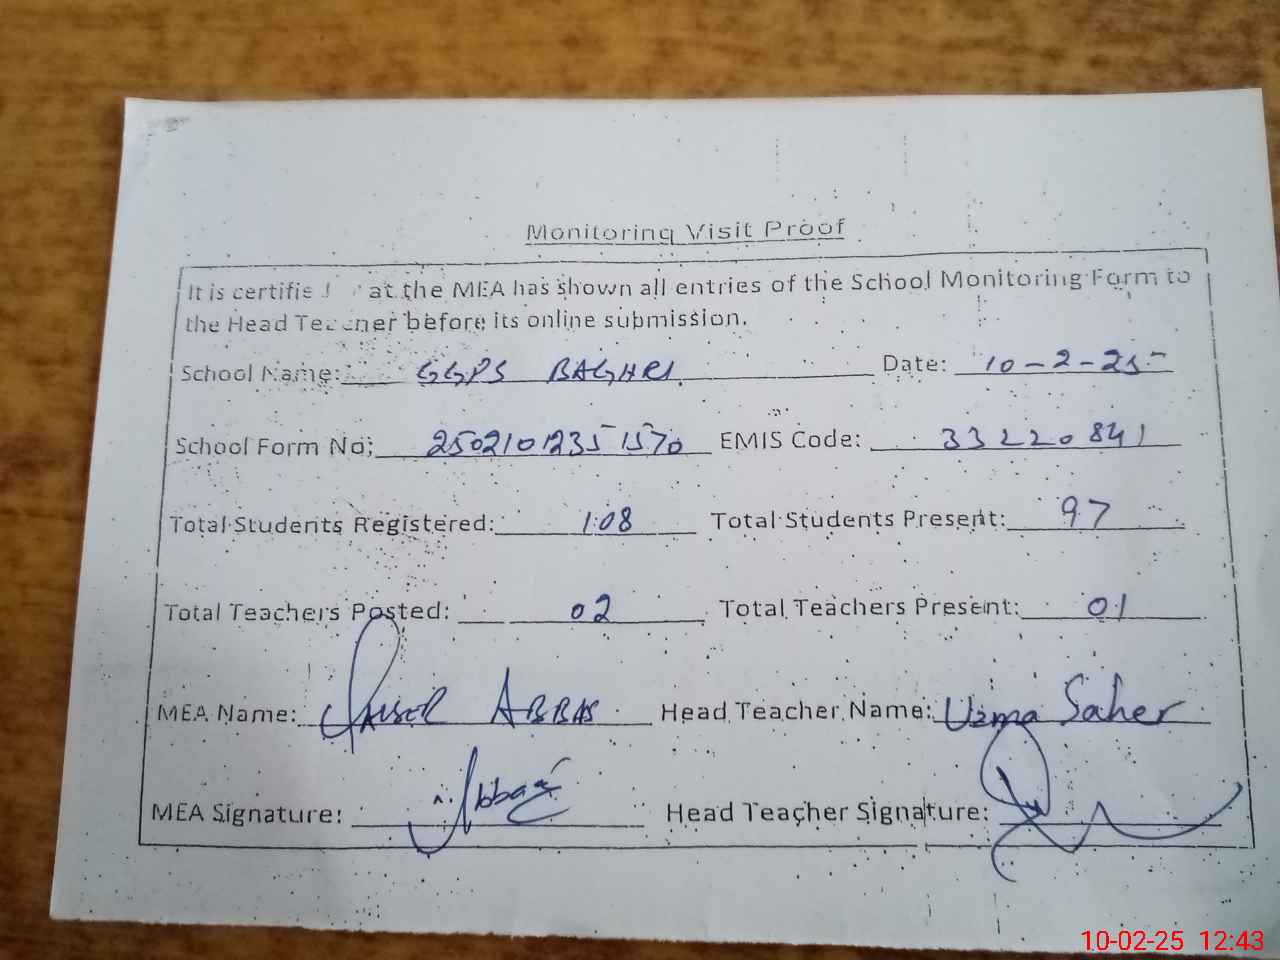 Monitoring Visit Proof
It is certified that the MEA has shown all entries of the School Monitoring Form to
the Head Teacher before its online submission.
School Name: GGPS BAGHRI Date: 10-2-25
School Form No: 2502101235 1570 EMIS Code: 33220841
Total Students Registered: 108 Total Students Present: 97
Total Teachers Posted: 02 Total Teachers Present: 01
MEA Name: QAISER ABBAS Head Teacher Name: Uzma Saher
MEA Signature: Abbas Head Teacher Signature:
10-02-25 12:43